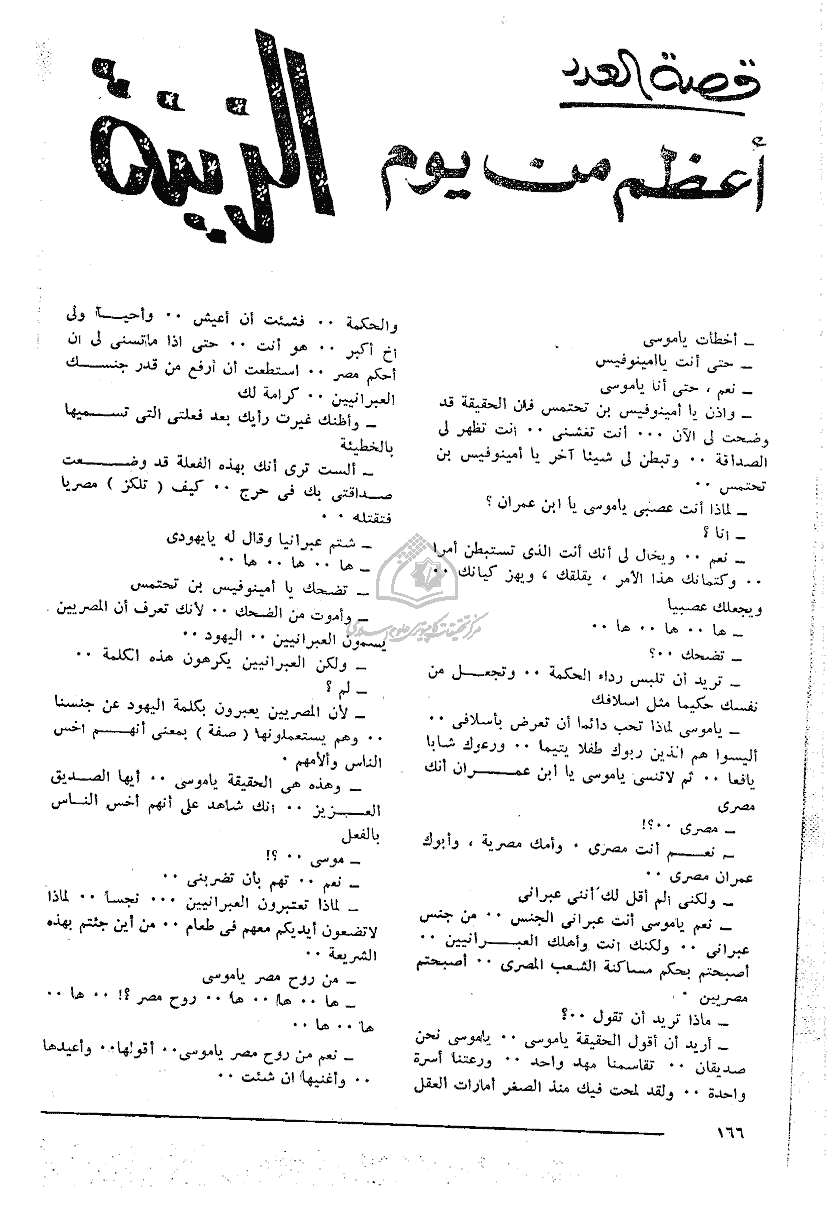 قصة العدد
أعظم من يوم الزينة
ــ أخطأت ياموسى
ــ حتى أنت ياأمينوفيس
ــ نعم ، حتى أنا ياموسى
ــ واذن يا أمينوفيس بن تحتمس فان الحقيقة قد
وضحت لى الآن ٠٠٠ أنت تغشنى ٠٠ انت تظهر لى
الصداقة ٠٠ وتبطن لى شيئا آخر يا أمينوفيس بن
تحتمس ٠٠
ــ لماذا أنت عصبى ياموسى يا ابن عمران ؟
ــ انا ؟
ــ نعم ٠٠ ويخال لى أنك أنت الذى تستبطن أمرا
٠٠ وكتمانك هذا الأمر ، يقلقك ، ويهز كيانك ٠٠
ويجعلك عصبيا
ــ ها ٠٠ ها ٠٠ ها ٠٠
ــ تضحك ٠٠؟
ــ تريد أن تلبس رداء الحكمة ٠٠ وتجعــل من
نفسك حكيما مثل اسلافك
ــ ياموسى لماذا تحب دائما أن تعرض بأسلافى ٠٠
أليسوا هم الذين ربوك طفلا يتيما ٠٠ ورعوك شابا
يافعا ٠٠ ثم لاتنسى ياموسى يا ابن عمــــران أنك
مصرى
ــ مصرى ٠٠؟!
ــ نعــــم أنت مصرى ٠ وأمك مصرية ، وأبوك
عمران مصرى ٠٠
ــ ولكنى ألم أقل لك أننى عبرانى
ــ نعم ياموسى أنت عبرانى الجنس ٠٠ من جنس
عبرانى ٠٠ ولكنك انت وأهلك العبــرانيين ٠٠
أصبحتم بحكم مساكنة الشعب المصرى ٠٠ أصبحتم
مصريين ٠
ــ ماذا تريد أن تقول ٠٠؟
ــ أريد أن أقول الحقيقة ياموسى ٠٠ ياموسى نحن
صديقان ٠٠ تقاسمنا مهد واحد ٠٠ ورعتنا أسرة
واحدة ٠٠ ولقد لمحت فيك منذ الصغر أمارات العقل
والحكمة ٠٠ فشئت أن أعيش ٠٠ وأحيــا ولى
اخ أكبر ٠٠ هو أنت ٠٠ حتى اذا ماتسنى لى ان
أحكم مصر ٠٠ استطعت أن أرفع من قدر جنســـك
العبرانيين ٠٠ كرامة لك
ــ وأظنك غيرت رأيك بعد فعلتى التى تســميها
بالخطيئة
ــ ألست ترى أنك بهذه الفعلة قد وضــــعت
صــداقتى بك فى حرج ٠٠ كيف ( تلكز ) مصريا
فتقتله ٠٠
ــ شتم عبرانيا وقال له يايهودى
ــ ها ٠٠ ها ٠٠ ها ٠٠
ــ تضحك يا أمينوفيس بن تحتمس
ــ وأموت من الضحك ٠٠ لأنك تعرف أن المصريين
يسمون العبرانيين ٠٠ اليهود ٠٠
ــ ولكن العبرانيين يكرهون هذه الكلمة ٠٠
ــ لم ؟
ــ لأن المصريين يعبرون بكلمة اليهود عن جنسنا
٠٠ وهم يستعملونها ( صفة ) بمعنى أنهــم اخس
الناس وألأمهم ٠
ــ وهذه هى الحقيقة ياموسى ٠٠ أيها الصــديق
العــــزيز ٠٠ انك شاهد على أنهم أخس النــاس
بالفعل
ــ موسى ٠٠ ؟!
ــ نعم ٠٠ تهم بأن تضربنى ٠٠
ــ لماذا تعتبرون العبرانيين ٠٠٠ نجسا ٠٠ لماذا
لاتضعون أيديكم معهم فى طعام ٠٠ من أين جئتم بهذه
الشريعة ٠٠
ــ من روح مصر ياموسى
ــ ها ٠٠ ها ٠٠ ها ٠٠ روح مصر ؟! ٠٠ ها ٠٠
ها ٠٠ ها ٠٠
ــ نعم من روح مصر ياموسى٠٠ أقولها٠٠ وأعيدها
٠٠ وأغنيها ان شئت ٠٠
مركز تحقيقات كامپيوترى علوم اسلامى
١٦٦